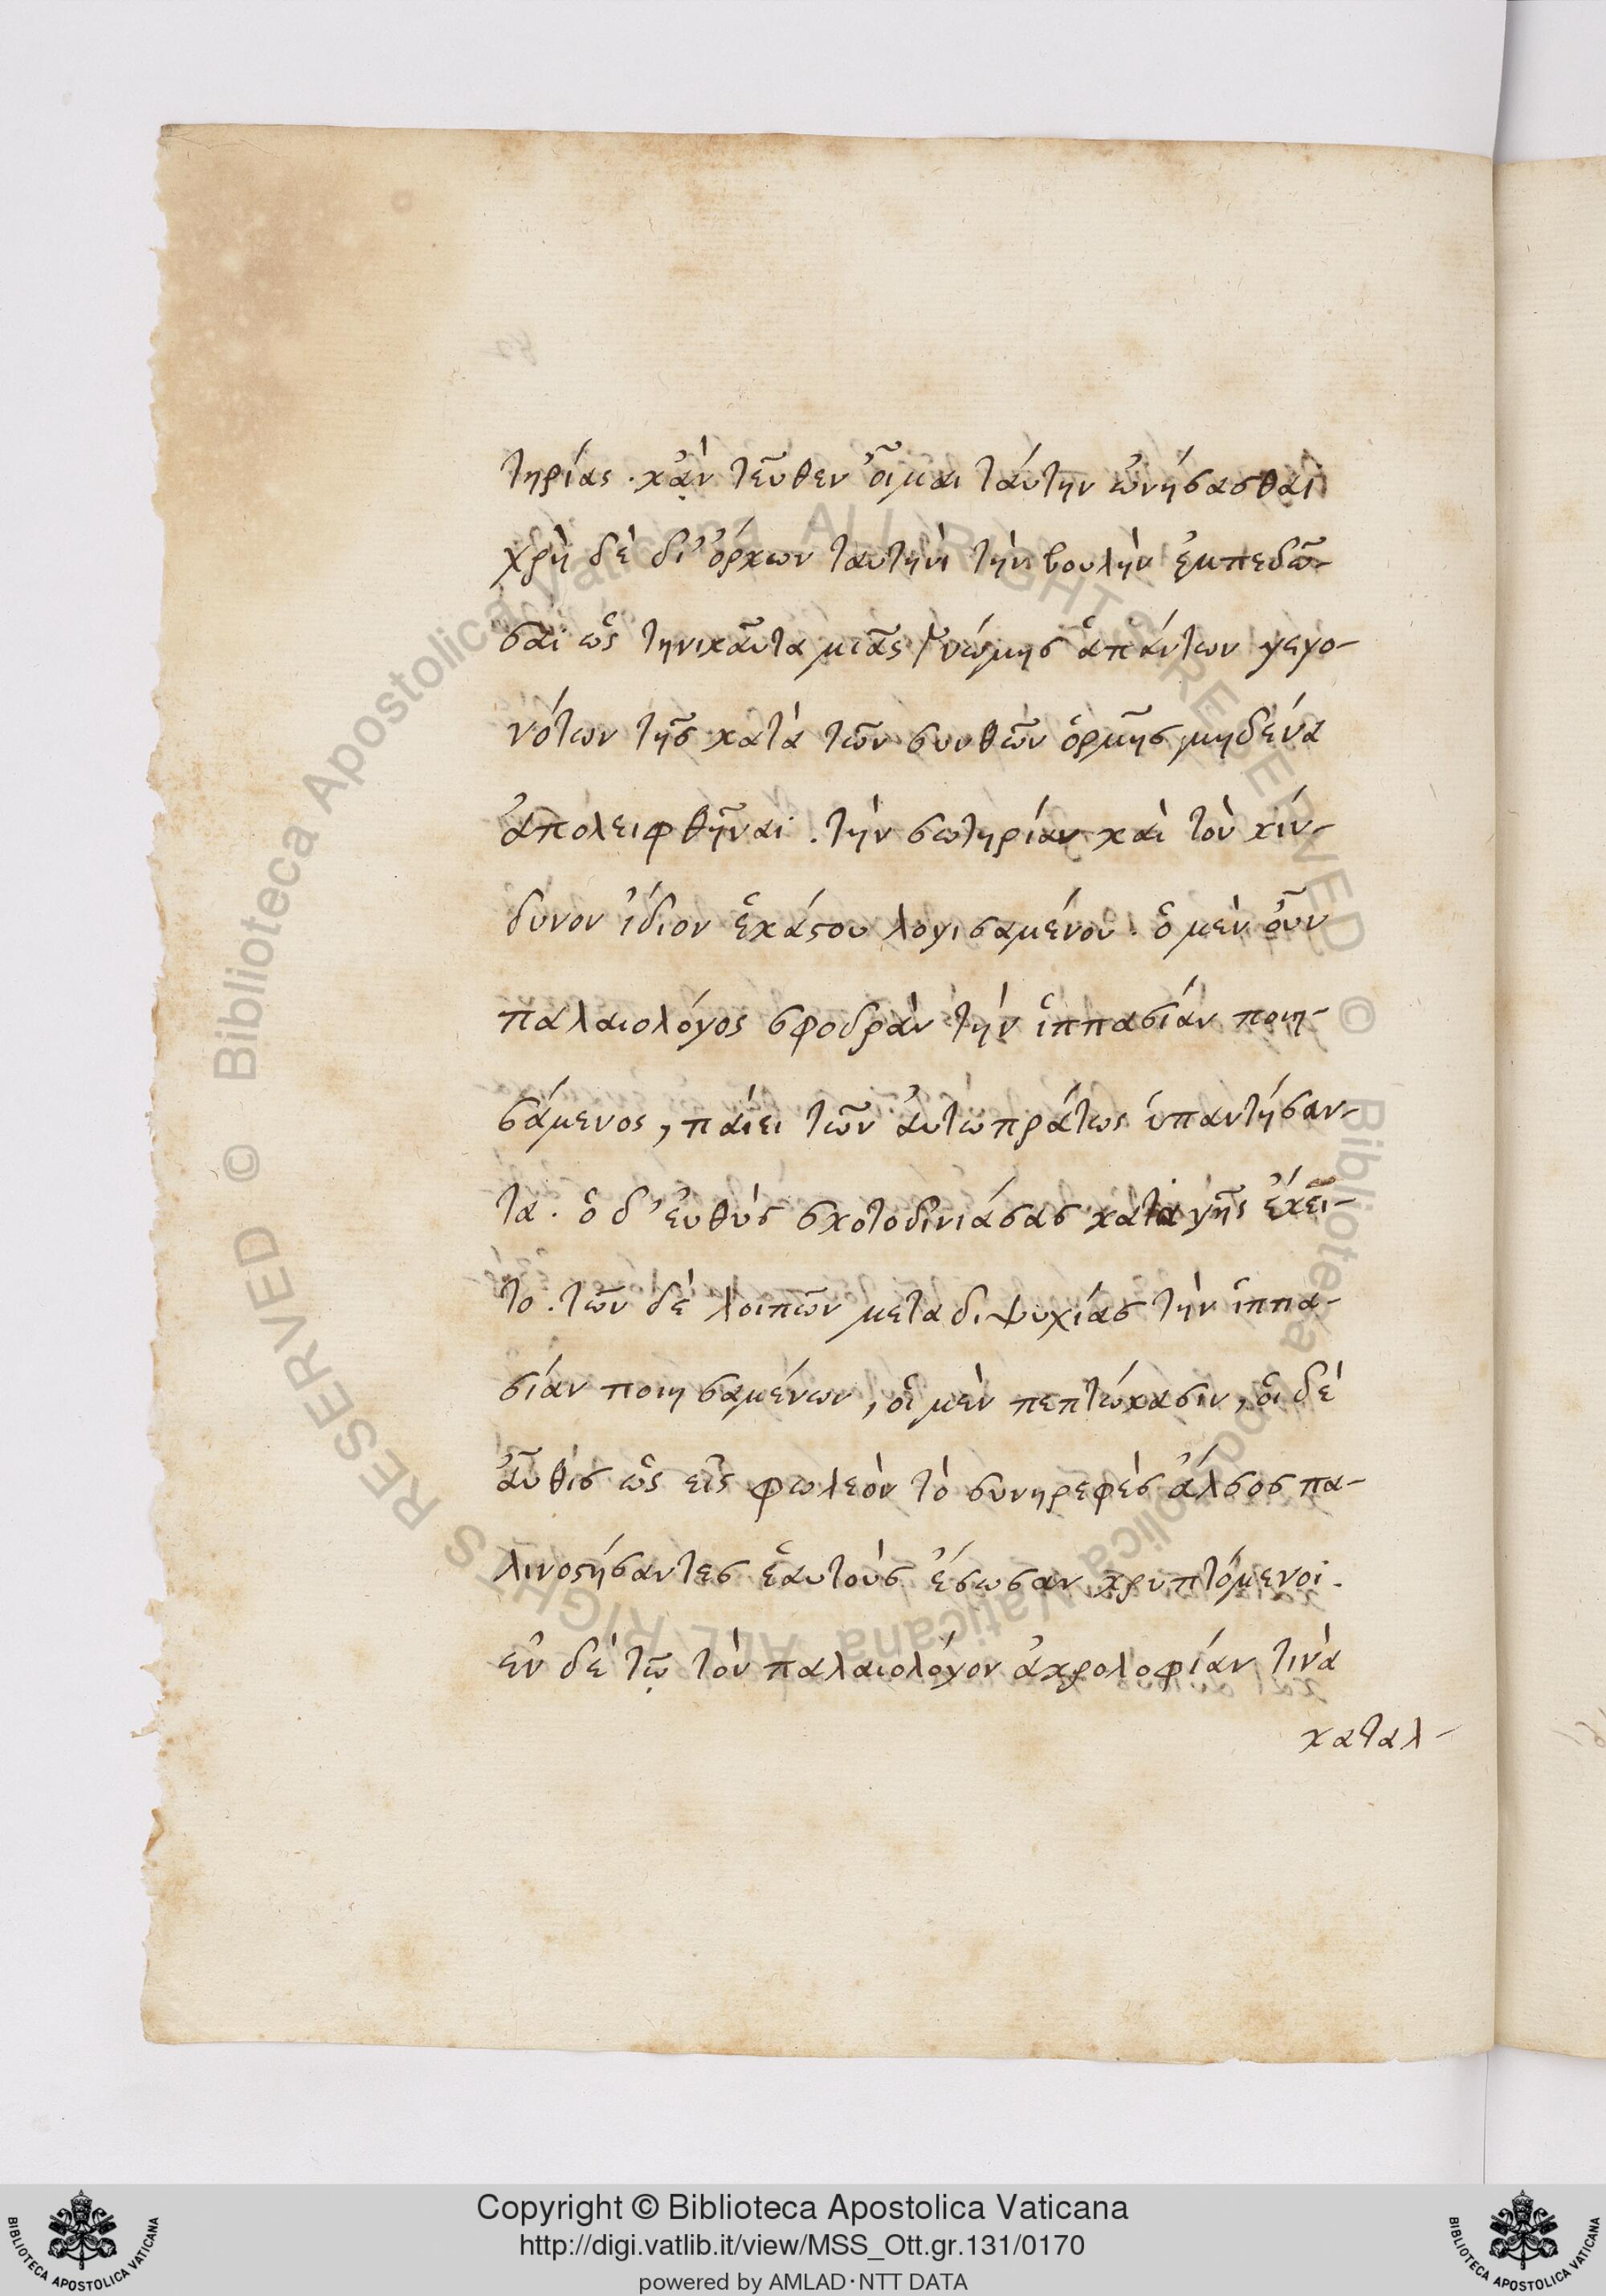 τηρίας. κᾀν τεῦθεν οἶμαι ταύτην ὠνήσασθαι
χρὴ δὲ δι' ὅρκων ταυτηνὶ τὴν βουλὴν ἐμπεδῶ-
σαι ὡς τηνικαῦτα μιᾶς γνώμης ἁπάντων γεγο-
νότων τῆς κατὰ τῶν συνθῶν ὁρμῆς μηδένα
ἀπολειφθῆναι. τὴν σωτηρίαν καὶ τὸν κίν-
δυνον ἴδιον ἑκάϛου λογισαμένου. ὁ μὲν οὖν
παλαιολόγος σφοδρὰν τὴν ἱππασίαν ποιη-
σάμενος, παίει τῶν ἀυτὼ πράτως ὑπαντήσαν-
τα. ὁ δ' ἐυθὺς σκοτοδινιάσας κατὰ γῆς ἔκει-
το. τῶν δὲ λοιπῶν μετα διψυχίας τὴν ἱππα-
σίαν ποιησαμένων, οἱ μὲν πεπτώκασιν, οἱ δὲ
ἀῦθις ὡς εἰς φωλεὸν τὸ συνηρεφὲς ἄλσος πα-
λινοϛήσαντες ἑαυτοὺς ἔσωσαν κρυπτόμενοι.
εν δὲ τῷ τὸν παλαιολόγον ἀκρολοφίαν τινὰ
καταλ-
Copyright © Biblioteca Apostolica Vaticana
http://digi.vatlib.it/view/MSS_Ott.gr.131/0170
powered by AMLAD·NTT DATA
Biblioteca Apostolica Vaticana ALL RIGHTS RESERVED ©
Biblioteca Apostolica Vaticana ALL RIGHTS RESERVED ©
BIBLIOTECA APOSTOLICA VATICANA
BIBLIOTECA APOSTOLICA VATICANA